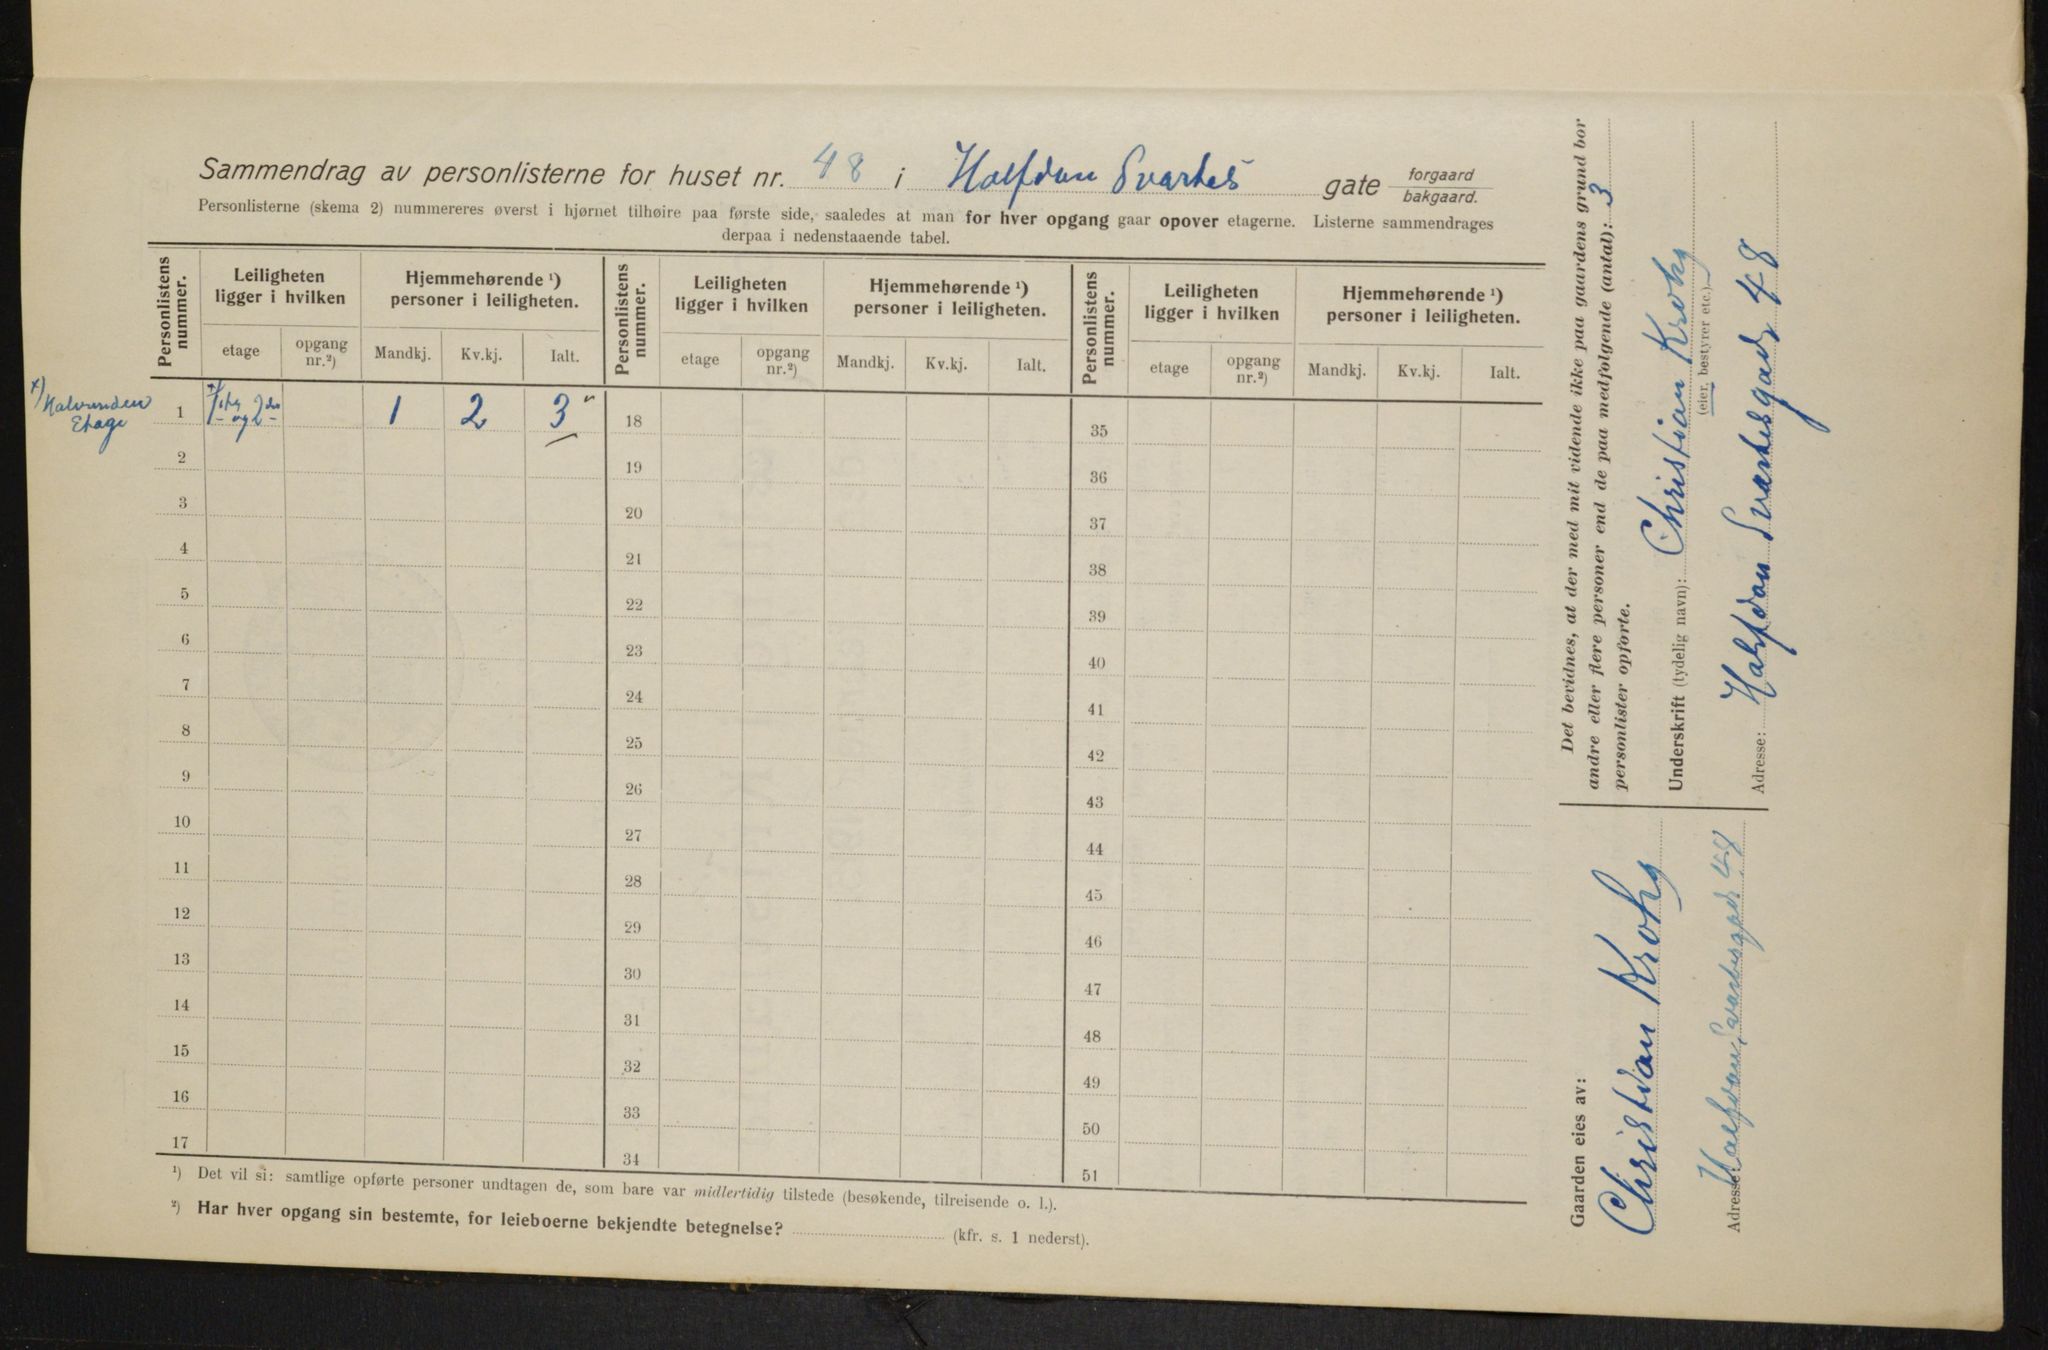 Sammendrag av personlisterne for huset nr. 48 i Halfdan Svartes gate forgaard
bakgaard.
Personlisterne (skema 2) nummereres øverst i hjørnet tilhøire paa første side, saaledes at man for hver opgang gaar opover etagerne. Listerne sammendrages
derpaa i nedenstaaende tabel.
Personlistens nummer. Leiligheten ligger i hvilken Hjemmehørende ¹) personer i leiligheten. Personlistens nummer. Leiligheten ligger i hvilken Hjemmehørende ¹) personer i leiligheten. Personlistens nummer. Leiligheten ligger i hvilken Hjemmehørende ¹) personer i leiligheten.
etage opgang nr.²) Mandkj. Kv.kj. Ialt. etage opgang nr.²) Mandkj. Kv.kj. Ialt. etage opgang nr.²) Mandkj. Kv.kj. Ialt.
x) Etage
1 og 2 1 2 3 18 35
2 19 36
3 20 37
4 21 38
5 22 39
6 23 40
7 24 41
8 25 42
9 26 43
10 27 44
11 28 45
12 29 46
13 30 47
14 31 48
15 32 49
16 33 50
17 34 51
¹) Det vil si: samtlige opførte personer undtagen de, som bare var midlertidig tilstede (besøkende, tilreisende o. l.).
²) Har hver opgang sin bestemte, for leieboerne bekjendte betegnelse? (kfr. s. 1 nederst).
Det bevidnes, at der med mit vidende ikke paa gaardens grund bor
andre eller flere personer end de paa medfølgende (antal): 3
personlister opførte.
Underskrift (tydelig navn): Christian Krohg
(eier, bestyrer etc.)
Adresse: Halfdan Svartesgade 48
Gaarden eies av:
Christian Krohg
Adresse Halfdan Svartesgade 48